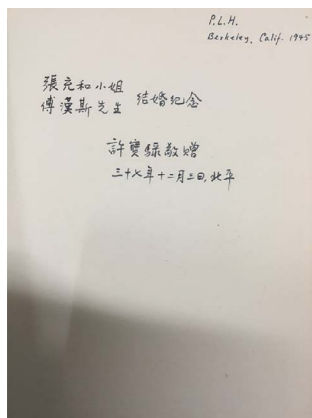 P.L.H.
Berkeley, Calif. 1945
張充和小姐
傅漢斯先生
結婚纪念
許寶騄敬贈
三十七年十二月三日,北平